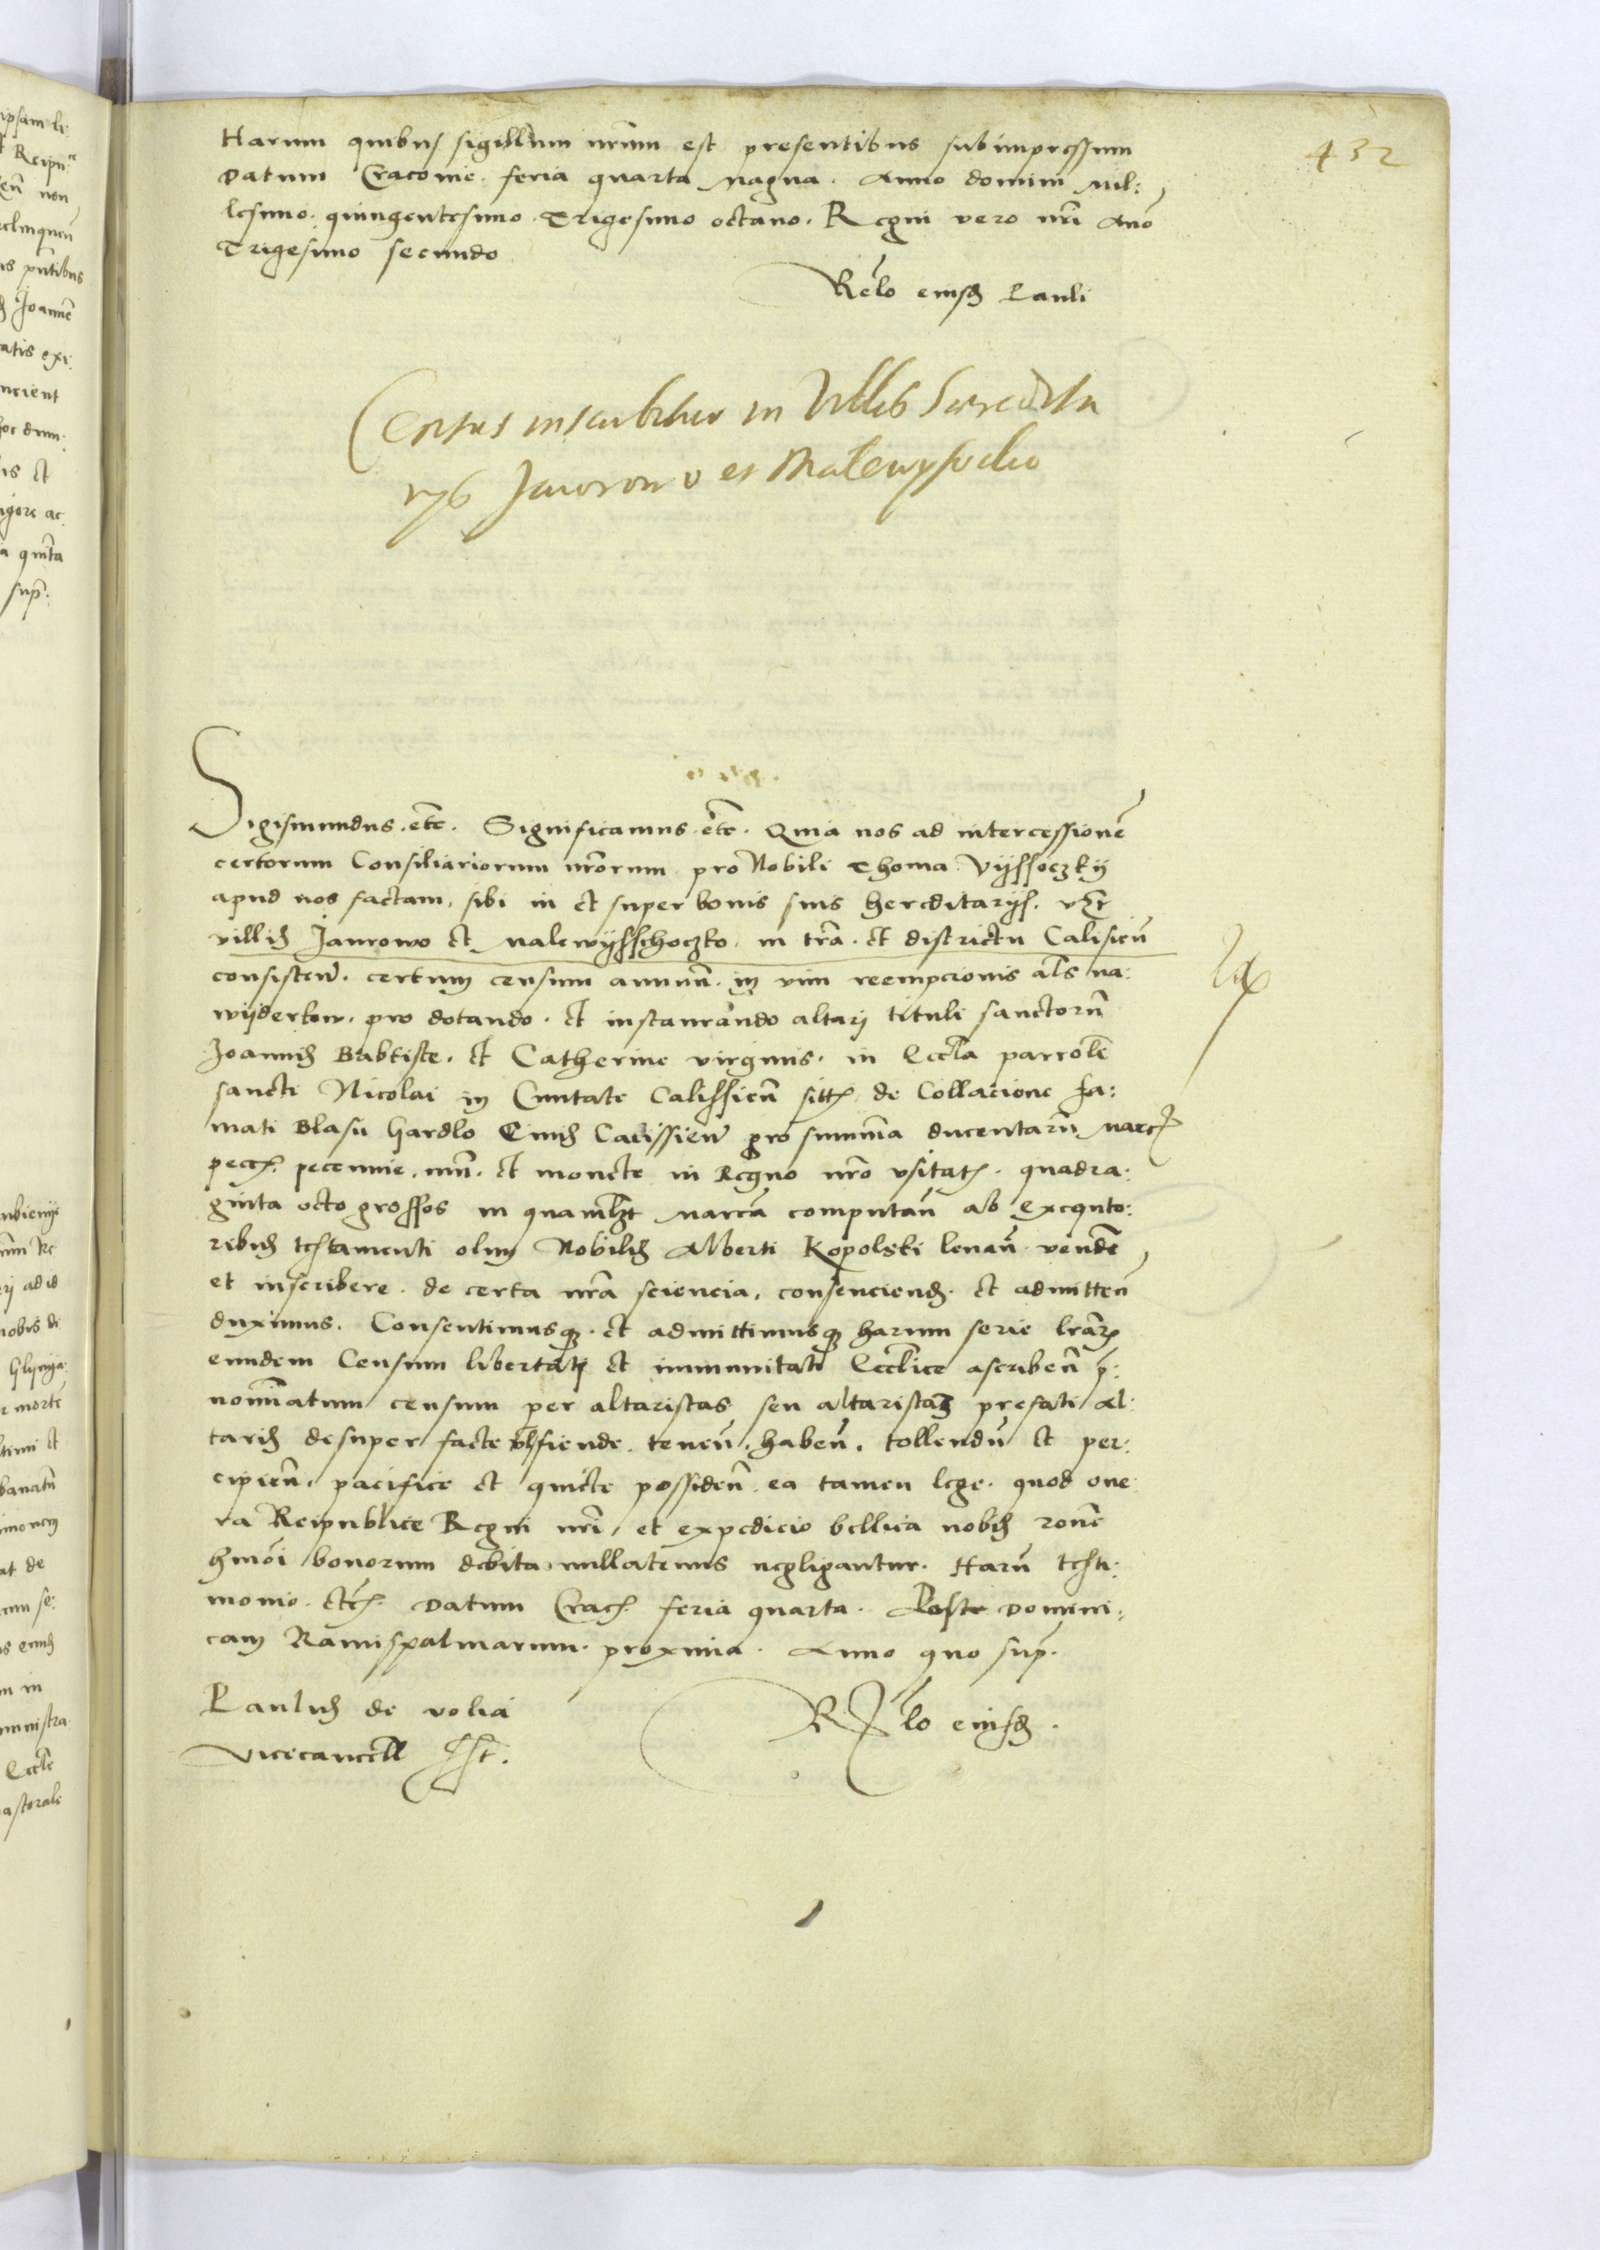 432
Harum quibus sigillum nrum est presentibus subimpressum
Datum Cracovie. feria quarta Magna. Anno domini Mil:
lesimo. quingentesimo. Trigesimo octavo. Regni vero nri Ano
Trigesimo secundo
Relo eiusd Pauli
Census inscribitur in Villis haeredita
rys Jaworowo et Malewyssocko
Sigismundus. etc. Significamus. etc. Quia nos ad intercessione
certorum Consiliariorum nrorum pro Nobili Thoma Vijssoczkij
apud nos factam, sibi in et super bonis suis hereditarijs. vz
villis Jaurowo et Malewijsschoczko. in tra. et districtu Calisien
consisten. certum censum annuum. in vim reempcionis als na:
wijderkow. pro dotando. et instaurando altari tituli sanctorum
Joannis Babtiste. et Catherine virginis. in Eccla parrole
sancti Nicolai in Civitate Calissien sitt de Collacione fa:
mati Blasii Gardlo Civis Calissien pro summa ducentaru Marc
pecc. pecunie. num. et monete in Regno nro vsitat. quadra
ginta octo grossos in quamlzt Marca computan ab exequto:
ribus testamenti olim Nobilis Alberti Kopolski levan vende
et inscribere. de certa nra sciencia. consenciend. et admitten
duximus. Consentimusq. et admittimusq harum serie lrar
eundem Censum libertati et immunitati Ecclice ascriben p:
nominatum censum per altaristas seu altaristam prefati Al:
taris desuper facte fiende. tenen. haben. tollendu et per:
cipien. pacifice et quiete possiden. ea tamen lege. quod one
ra Reipublice Regni nri, et expedicio bellica nobis rone
hmoi bonorum debita nullatenus negligantur. Haru testi:
monio. etc. Datum Crac. feria quarta. Post Domini:
cam Ramispalmarum. proxima. Anno quo sup.
Paulus de volia
Vicecancell sst.
Relo eiusd.